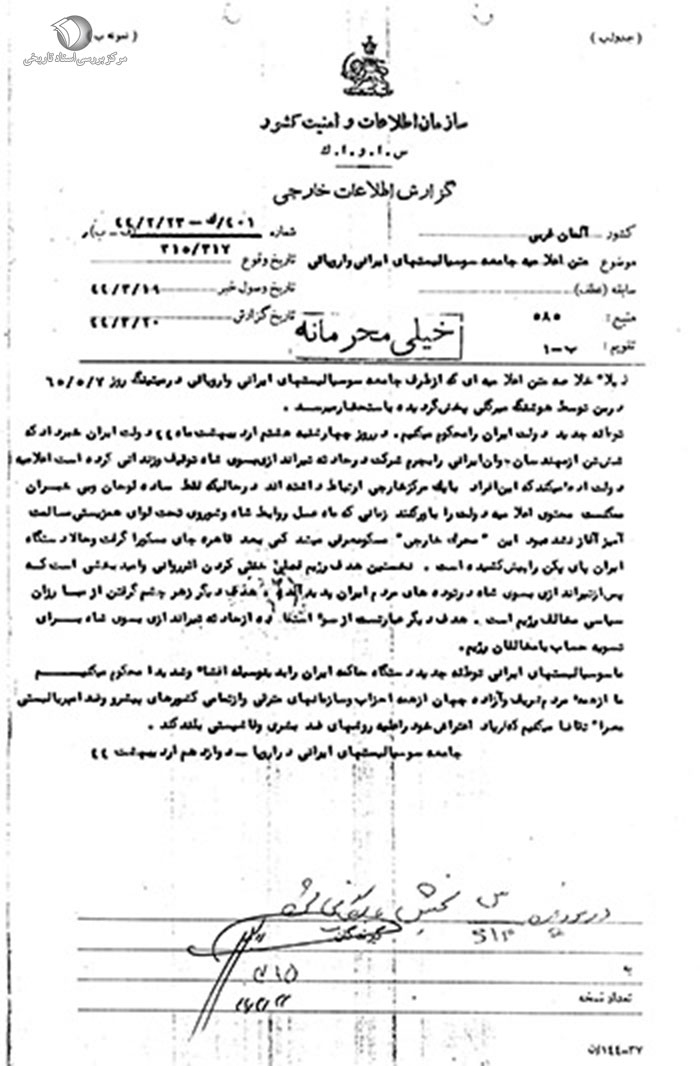 (جدولب)
(نمونه ب)
مرکز بررسی اسناد تاریخی
سازمان اطلاعات و امنیت کشور
س.ا.و.ا.ک
گزارش اطلاعات خارجی
کشور آلمان غربی شماره
موضوع متن اعلامیه جامعه سوسیالیستهای ایرانی در اروپائی ۳۱۵/۳۱۷
تاریخ وقوع
سابقه (عطف) تاریخ وصول خبر ۴۴/۳/۱۹
منبع: ۵۸۵ تاریخ گزارش ۴۴/۳/۲۰
تقویم: ب-۱ خیلی محرمانه
ذیلا" خلاصه متن اعلامیه ای که از طرف جامعه سوسیالیستهای ایرانی در اروپائی در میتینگ روز ۶۵/۵/۷
در بن توسط هوشنگ پخش گردیده باستحضار میرسد.
توطئه جدید دولت ایران را محکوم میکنیم. در روز چهارشنبه هشتم اردیبهشت ماه ۴۴ دولت ایران خبر داد که
شش تن از مهندسان جوان ایرانی را بجرم شرکت در حادثه تیراندازی بسوی شاه توقیف و زندانی کرده است اعلامیه
دولت ادعا میکند که این افراد با یک مرکز خارجی ارتباط داشته اند در حالیکه فقط ساده لوحان و بی خبران
ممکنست محتوی اعلامیه دولت را باور کنند زمانی که ماه عسل روابط شاه و شوروی تحت لوای همزیستی مسالمت
آمیز آغاز نشده بود این "محرک خارجی" مسکو معرفی میشد کمی بعد قاهره جای مسکو را گرفت و حالا دستگاه
ایران پای پکن را پیش کشیده است. نخستین هدف رژیم فعلی خنثی کردن اثر روانی و امید بخشی است که
پس از تیراندازی بسوی شاه در توده های مردم ایران پدید آمده و هدف دیگر زهر چشم گرفتن از مبارزان
سیاسی مخالف رژیم است. هدف دیگر عبارتست از سوء استفاده از حادثه تیراندازی بسوی شاه برای
تسویه حساب با مخالفان رژیم.
ما سوسیالیستهای ایرانی توطئه جدید دستگاه حاکمه ایران را بدینوسیله افشاء و شدیدا محکوم میکنیم
ما از همه مردم شریف و آزاده جهان از همه احزاب و سازمانهای مترقی و از تمامی کشورهای پیشرو و ضد امپریالیستی
مصرا" تقاضا میکنیم که فریاد اعتراض خود را علیه روشهای ضد بشری و فاشیستی بلند کنند.
جامعه سوسیالیستهای ایرانی در اروپا دوازدهم اردیبهشت ۴۴
در پرونده
به
تعداد نسخه